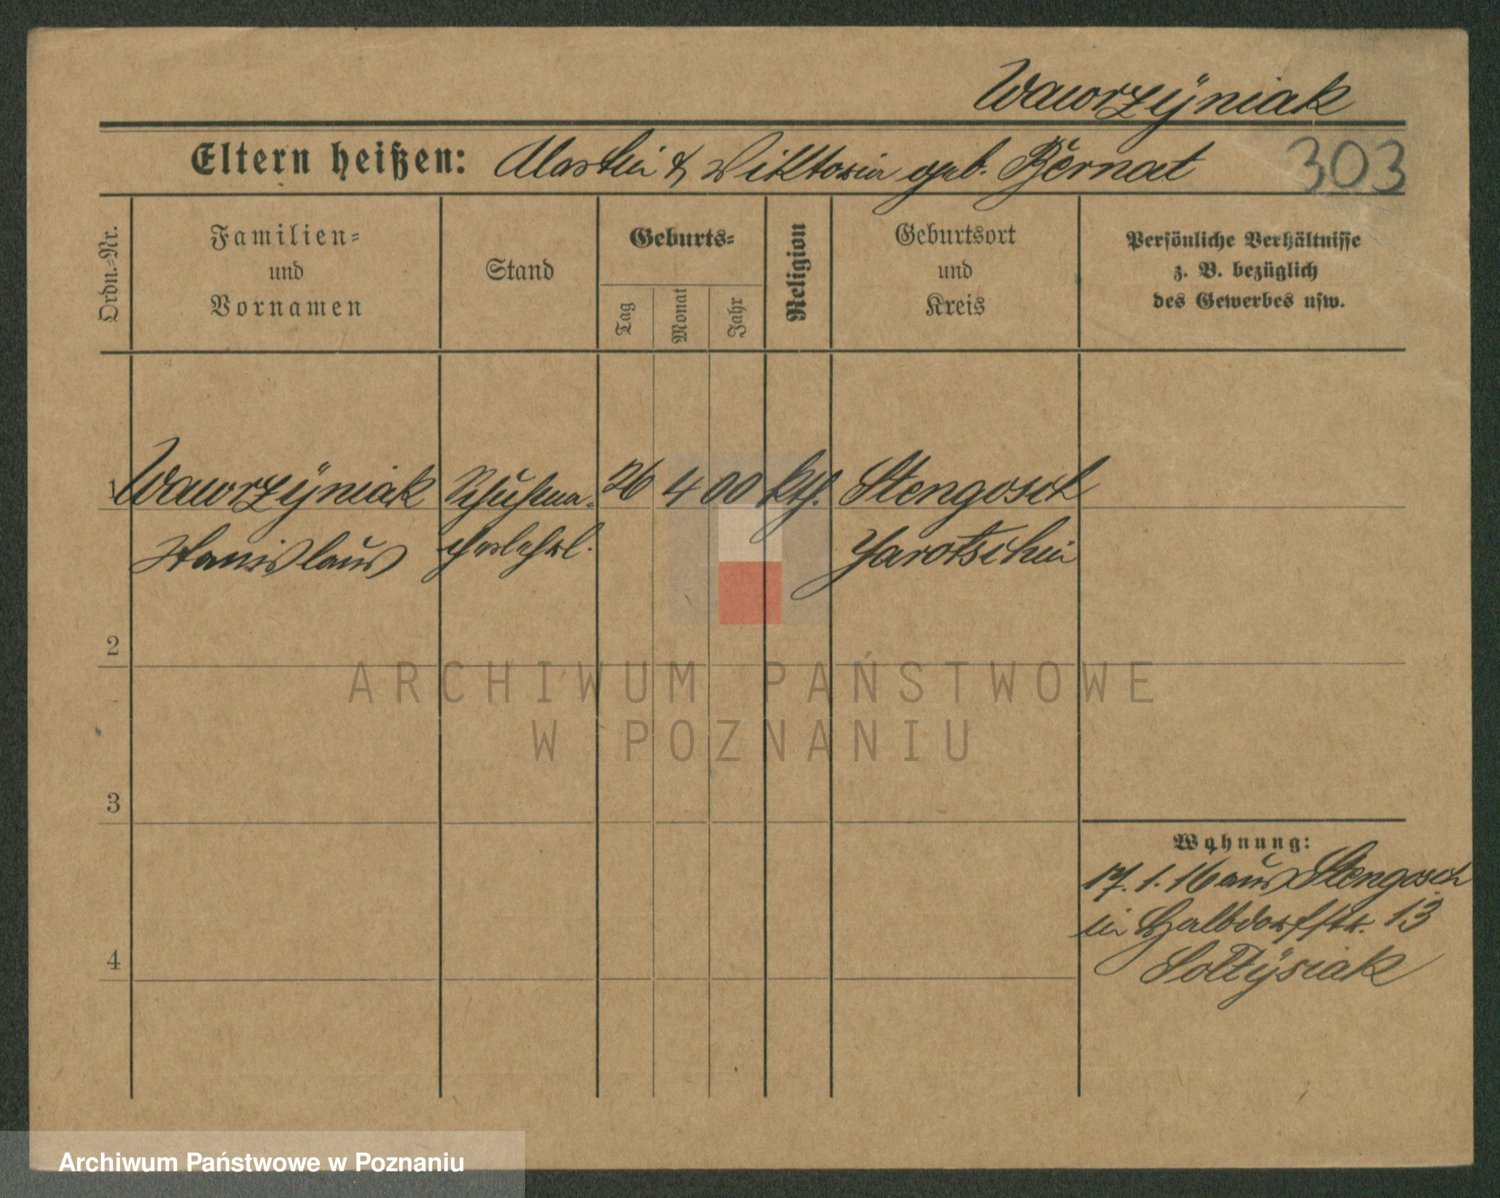 Wawrzÿniak
Eltern heißen: Martin & Wiktoria geb. Bernat
303
Ordn.-Nr.
Familien-
und
Vornamen
Stand
Geburts-
Tag
Monat
Jahr
Religion
Geburtsort
und
Kreis
Persönliche Verhältnisse
z. B. bezüglich
des Gewerbes usw.
1
Wawrzÿniak Schuhma- 26 4 00 kth. Stengosch
Stanislaus cherlehrl. Jarotschin
2
ARCHIWUM PAŃSTWOWE
W POZNANIU
3
Wohnung:
17. 1. 16 aus Stengosch
in Halbdorfstr. 13
Soltÿsiak
4
Archiwum Państwowe w Poznaniu